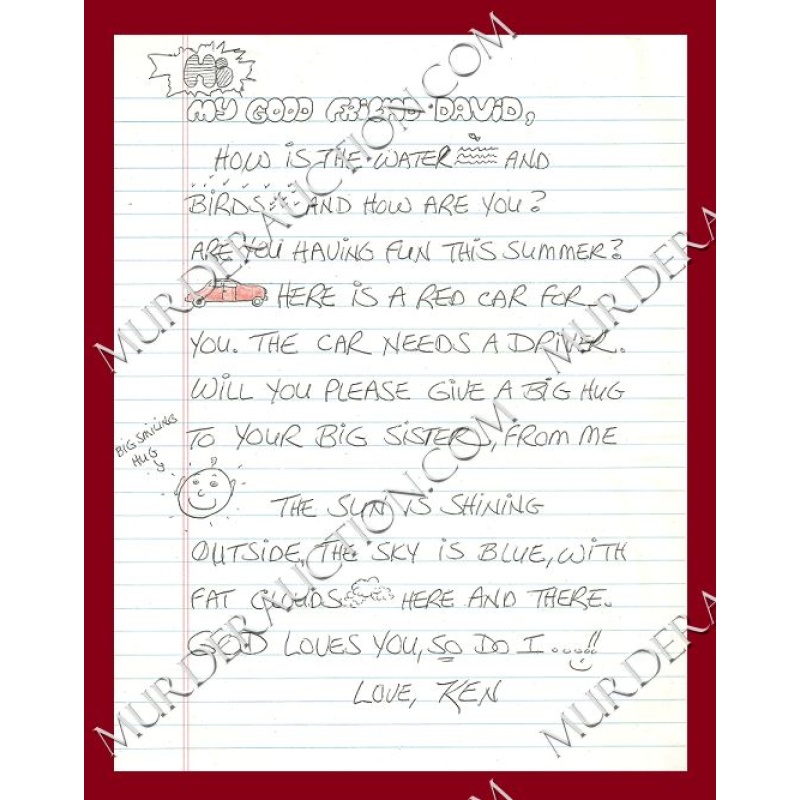 Hi
MY GOOD FRIEND DAVID,
HOW IS THE WATER AND
BIRDS AND HOW ARE YOU?
ARE YOU HAVING FUN THIS SUMMER?
HERE IS A RED CAR FOR
YOU. THE CAR NEEDS A DRIVER.
WILL YOU PLEASE GIVE A BIG HUG
TO YOUR BIG SISTER, FROM ME
BIG SMILING
HUG
THE SUN IS SHINING
OUTSIDE, THE SKY IS BLUE, WITH
FAT CLOUDS HERE AND THERE.
GOD LOVES YOU, SO DO I....!!
LOVE, KEN
MURDERAUCTION.COM
MURDERAUCTION.COM
MURDERA
MURDERA